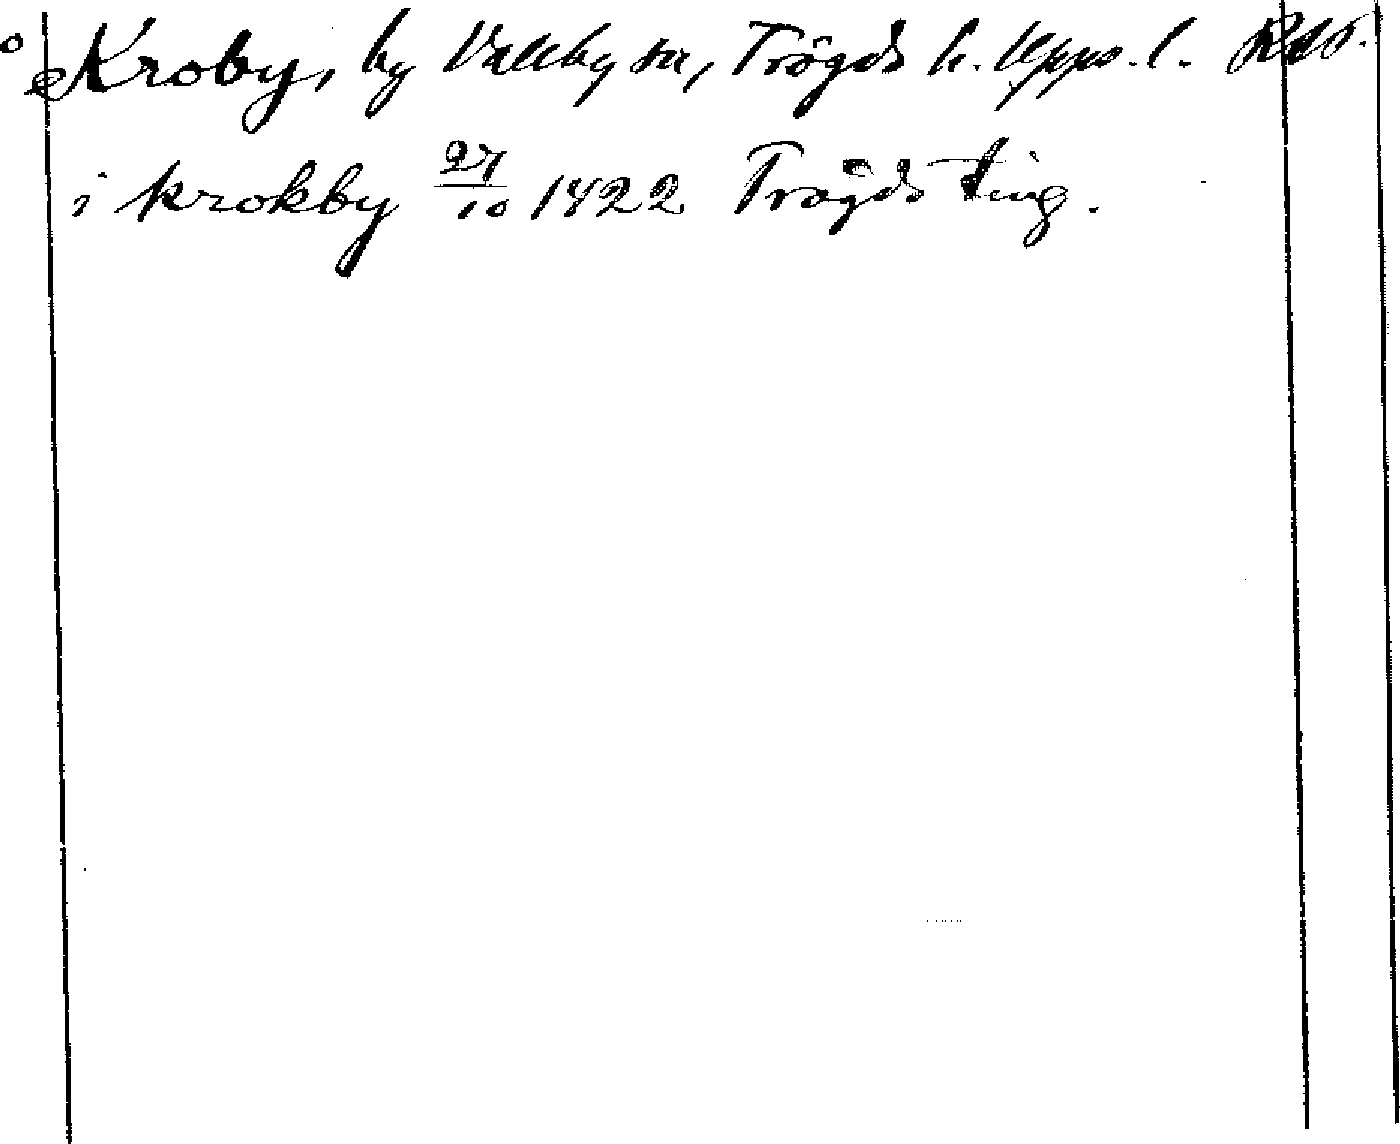 ° Kroby, by Vallby sn, Trögds h. Upps. l.
i krokby 27/10 1422 Trögds ting.